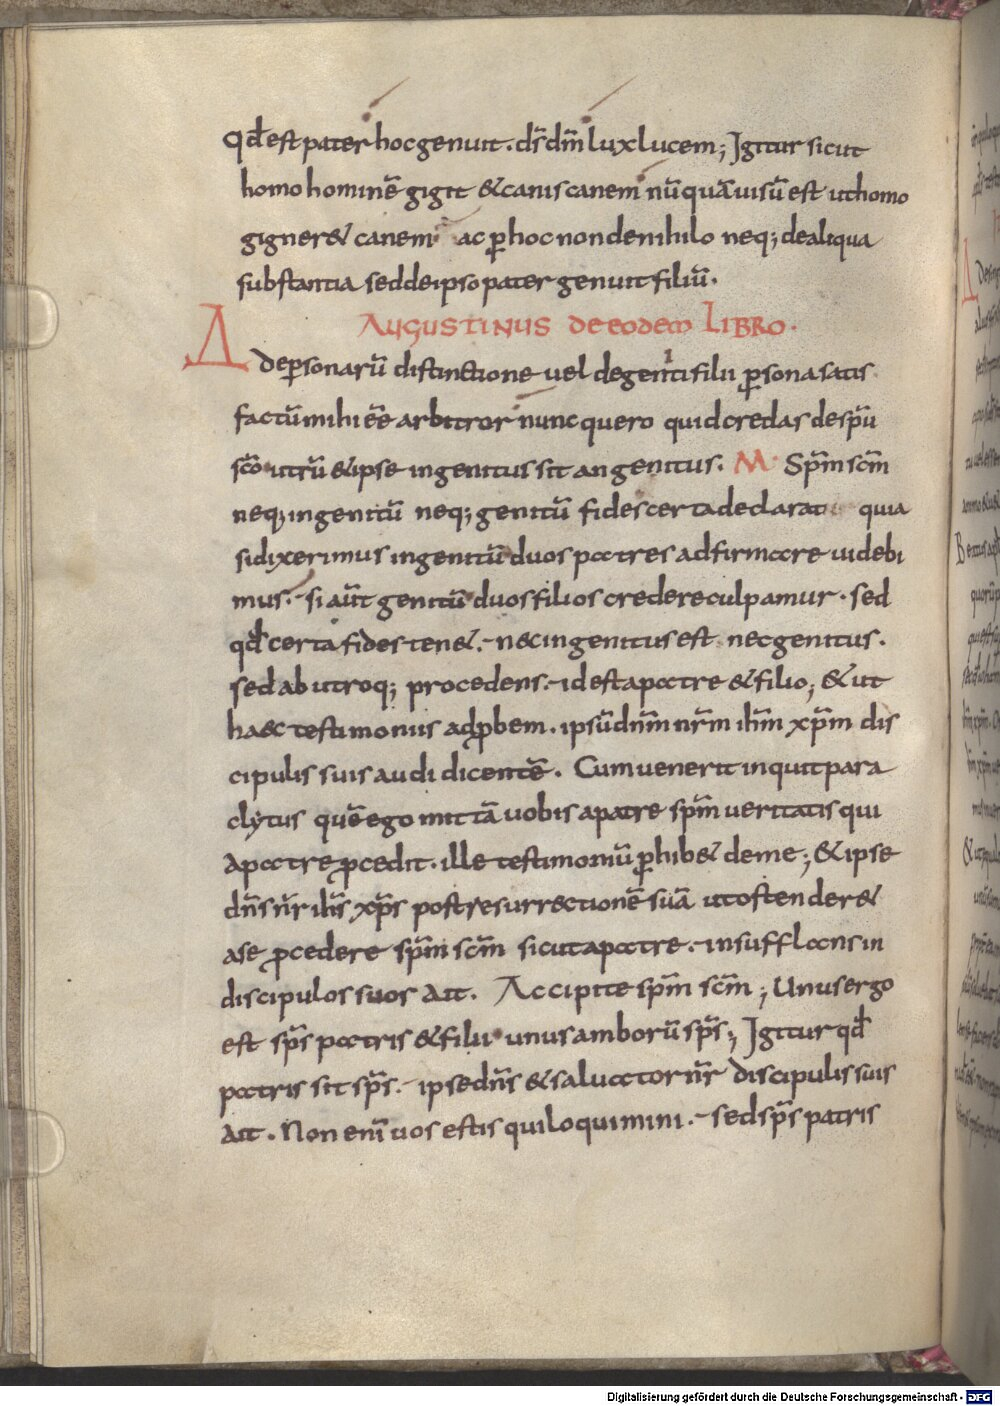 Qđ est pater hoc genuit. d̄s dm̄ lux lucem; Igitur sicut
homo hominē gigit & canis canem nū quā uisū est ut homo
gigner& canem ac ꝑ hoc non de nihilo neq; de aliqua
substantia sed de ipso pater genuit filiū.
AUGUSTINUS de eodem LIBRO.
A
De ꝑsonarū distinctione uel de geniti filii ꝑsona satis
factū mihi eē arbitror nunc quero quid credas de sp̄u
sc̄o utrū & ipse ingenitus sit an genitus. M Sp̄m sc̄m
neq; ingenitū neq; genitū fides certa declarat quia
si dixerimus ingenitū duos patres adfirmare uidebi
mus. si aūt genitū duos filios credere culpamur. sed
qđ certa fides ten&. nec ingenitus est nec genitus.
sed ab utroq; procedens. id est a patre & filio; & ut
haec testimoniis adꝓbem. ipsū dn̄m nr̄m ih̄m xp̄m dis
cipulis suis audi dicentē. Cum uenerit inquit para
clytus quē ego mittā uobis a patre sp̄m ueritatis qui
a patre ꝓcedit. ille testimoniū ꝑhib& de me; & ipse
dn̄s nr̄ ih̄s xp̄s post resurrectionē suā ut ostender&
a se ꝓcedere sp̄m sc̄m sicut a patre. insufflans in
discipulos suos ait. Accipite sp̄m sc̄m; Unus ergo
est sp̄s patris & filii unus amborū sp̄s; Igitur qđ
patris sit sp̄s. ipse dn̄s & saluator nr̄ discipulis suis
ait. Non enī uos estis qui loquimini. sed sp̄s patris
Digitalisierung gefördert durch die Deutsche Forschungsgemeinschaft - DFG